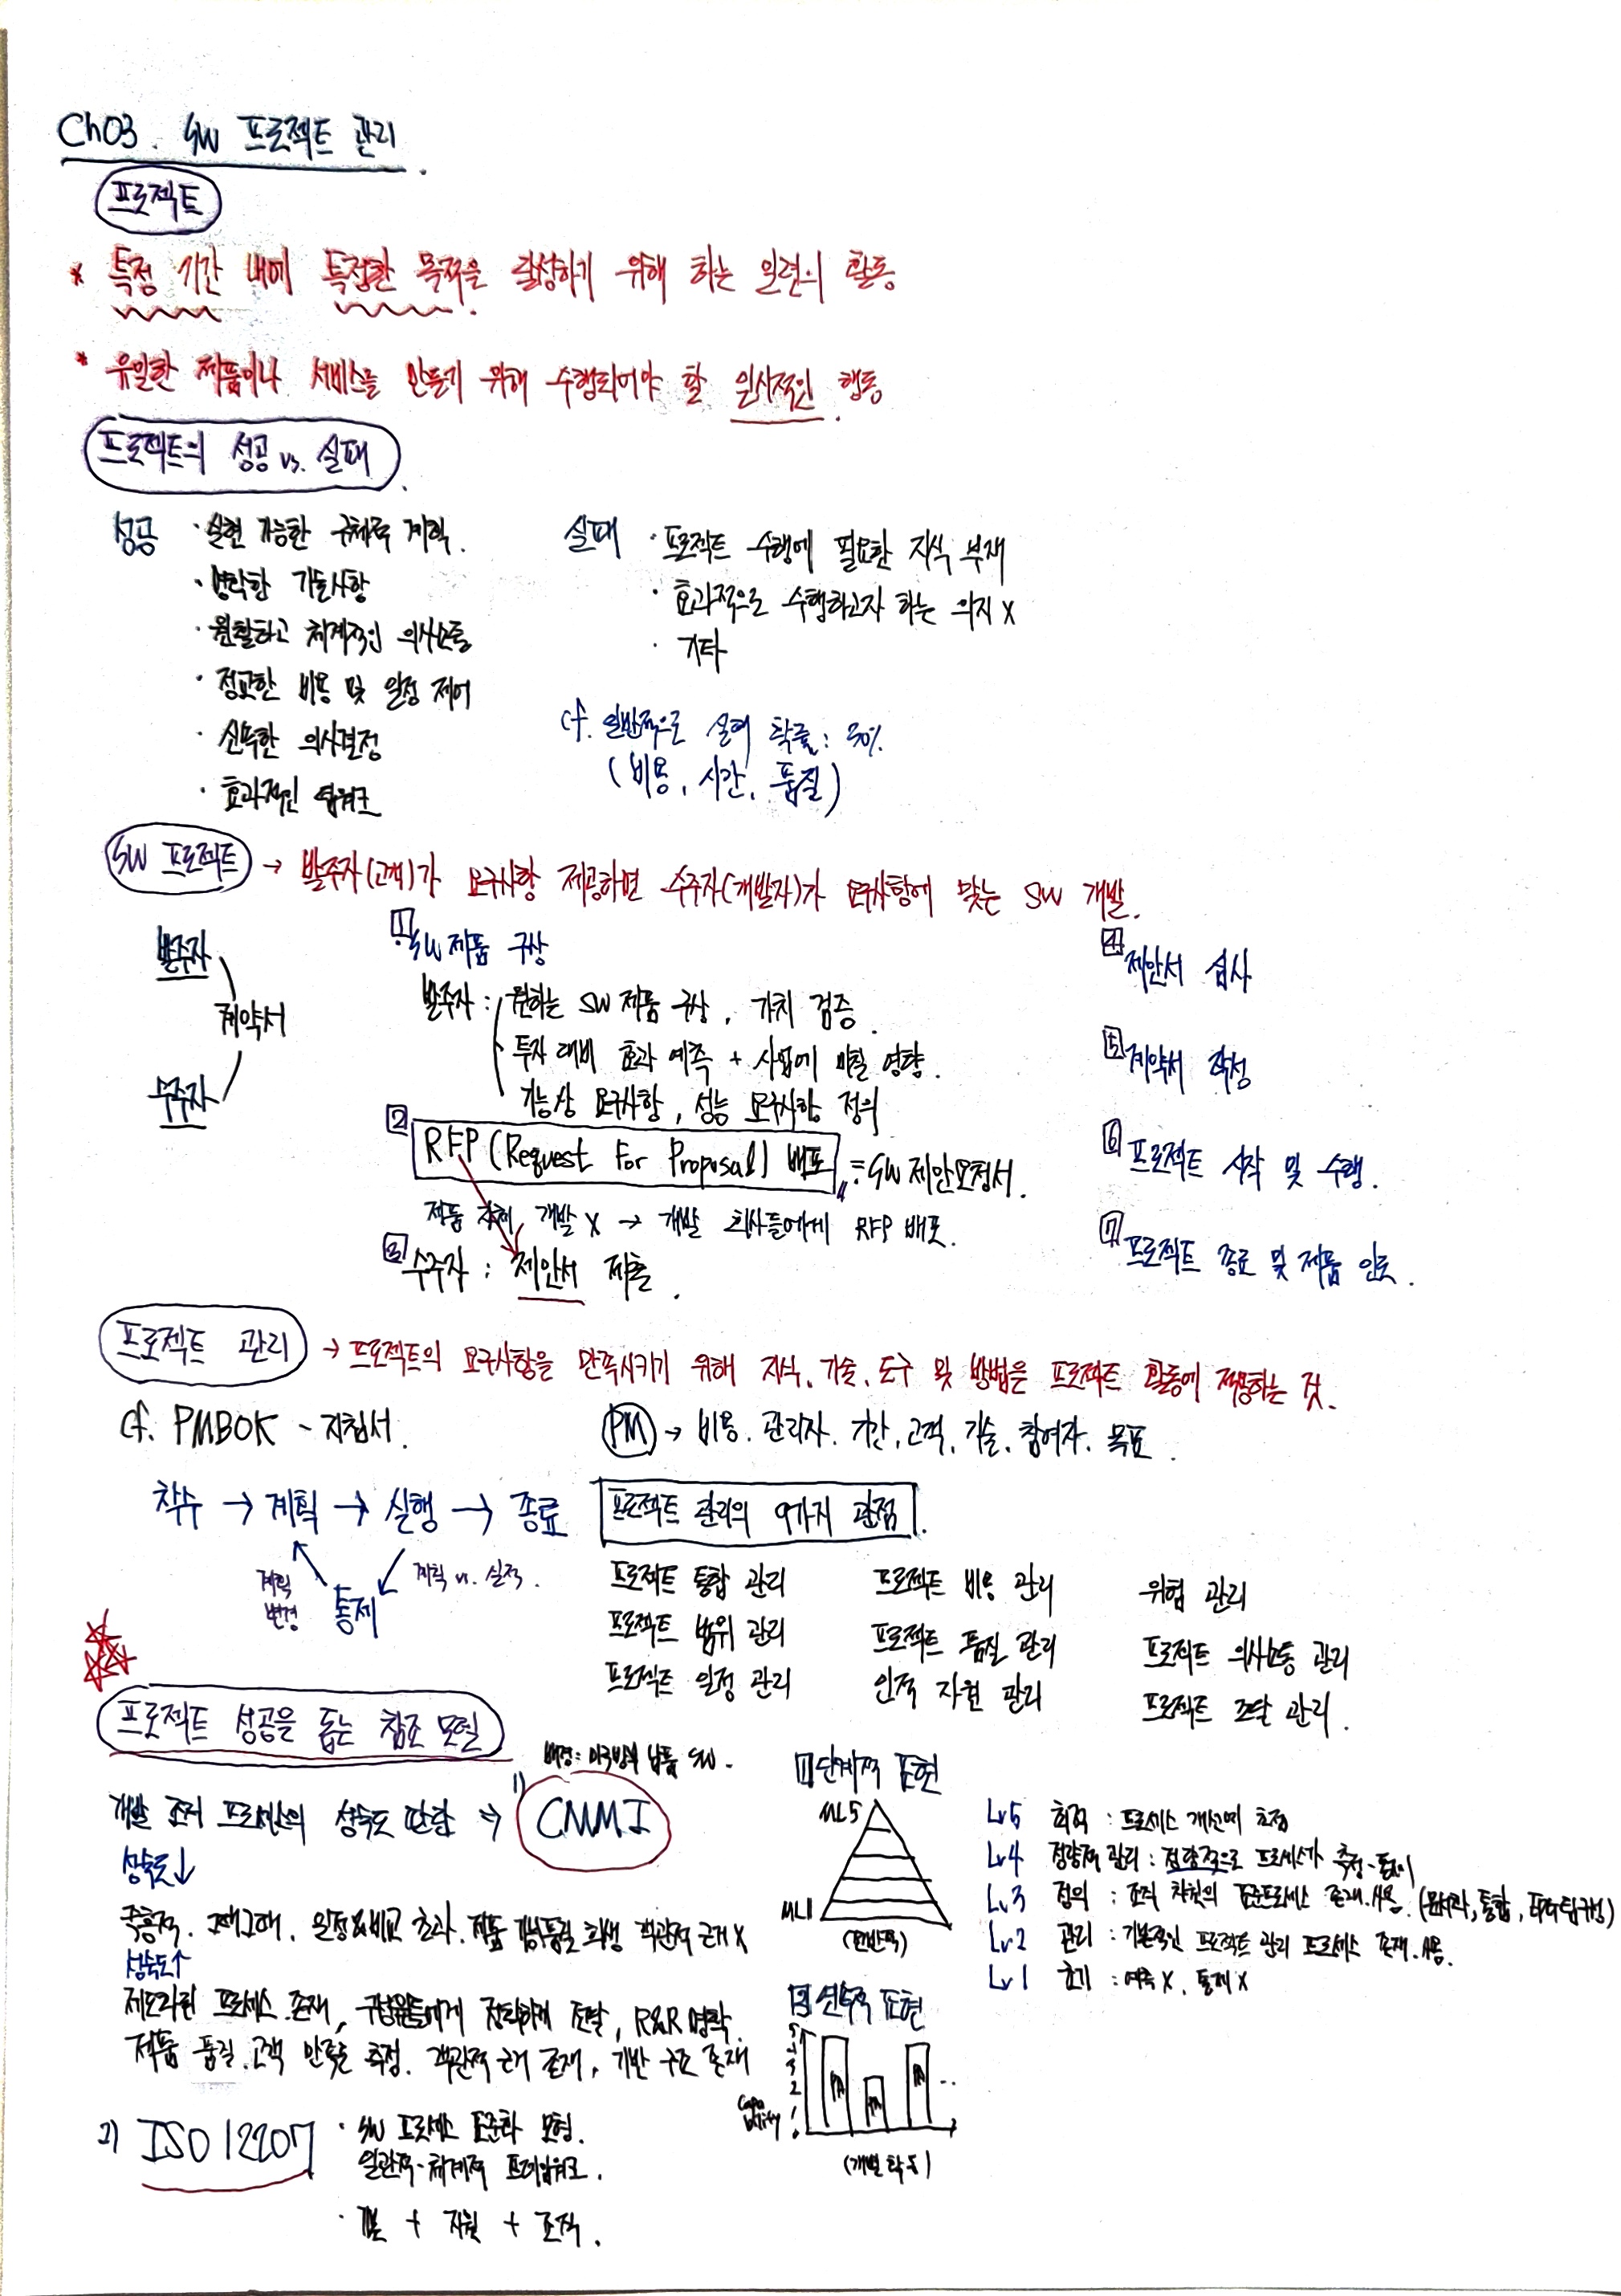 Ch03. SW 프로젝트 관리
프로젝트
* 특정 기간 내에 특정한 목적을 달성하기 위해 하는 일련의 활동
* 유일한 제품이나 서비스를 만들기 위해 수행되어야 할 일시적인 행동
프로젝트의 성공 vs. 실패
성공
· 실현 가능한 구체적 계획.
· 명확한 기술사항
· 원활하고 체계적인 의사소통
· 정교한 비용 및 일정 제어
· 신속한 의사결정
· 효과적인 팀워크
실패
· 프로젝트 수행에 필요한 지식 부재
· 효과적으로 수행하고자 하는 의지 X
· 기타
cf. 일반적으로 실패 확률: 30%
(비용, 시간, 품질)
SW 프로젝트 → 발주자(고객)가 요구사항 제공하면 수주자(개발자)가 요구사항에 맞는 SW 개발.
발주자
계약서
수주자
1 SW 제품 구상
발주자 : 원하는 SW 제품 구상, 가치 검증.
투자 대비 효과 예측 + 사업에 미칠 영향.
기능상 요구사항, 성능 요구사항 정의
2 RFP (Request For Proposal) 배포 = SW 제안요청서.
제품 자체 개발 X → 개발 회사들에게 RFP 배포.
3 수주자 : 제안서 제출.
4 제안서 심사
5 계약서 작성
6 프로젝트 시작 및 수행.
7 프로젝트 종료 및 제품 인도.
프로젝트 관리 → 프로젝트의 요구사항을 만족시키기 위해 지식, 기술, 도구 및 방법을 프로젝트 활동에 적용하는 것.
cf. PMBOK - 지침서.
PM → 비용, 관리자, 기간, 고객, 기술, 참여자, 목표.
착수 → 계획 → 실행 → 종료
계획 변경
통제
계획 vs. 실적.
프로젝트 관리의 9가지 관점.
프로젝트 통합 관리
프로젝트 범위 관리
프로젝트 일정 관리
프로젝트 비용 관리
프로젝트 품질 관리
인적 자원 관리
위험 관리
프로젝트 의사소통 관리
프로젝트 조달 관리.
프로젝트 성공을 돕는 참조 모델
배경: 미국방부 납품 SW.
개발 조직 프로세스의 성숙도 판단 ⇒ 1) CMMI
성숙도↓
즉흥적, 그때그때, 일정&비교 초과, 제품 품질 희생 객관적 근거 X
성숙도↑
제도화된 프로세스 존재, 구성원들에게 정확하게 전달, R&R 명확.
제품 품질, 고객 만족도 측정. 객관적 근거 존재, 기반 구조 존재
1 단계적 표현
ML5
ML1
(전반적)
Lv5 최적 : 프로세스 개선에 초점
Lv4 정량적 관리 : 정량적으로 프로세스가 측정·통제
Lv3 정의 : 조직 차원의 표준프로세스 존재, 사용. (문서화, 통합,
Lv2 관리 : 기본적인 프로젝트 관리 프로세스 존재, 사용.
Lv1 초기 : 예측 X, 통제 X
2 연속적 표현
5
4
3
2
1
0
Capability
PA
PA
PA
..
(개별적)
2) ISO 12207
· SW 프로세스 표준화 모형.
일관적·체계적 프레임워크.
· 기본 + 지원 + 조직.